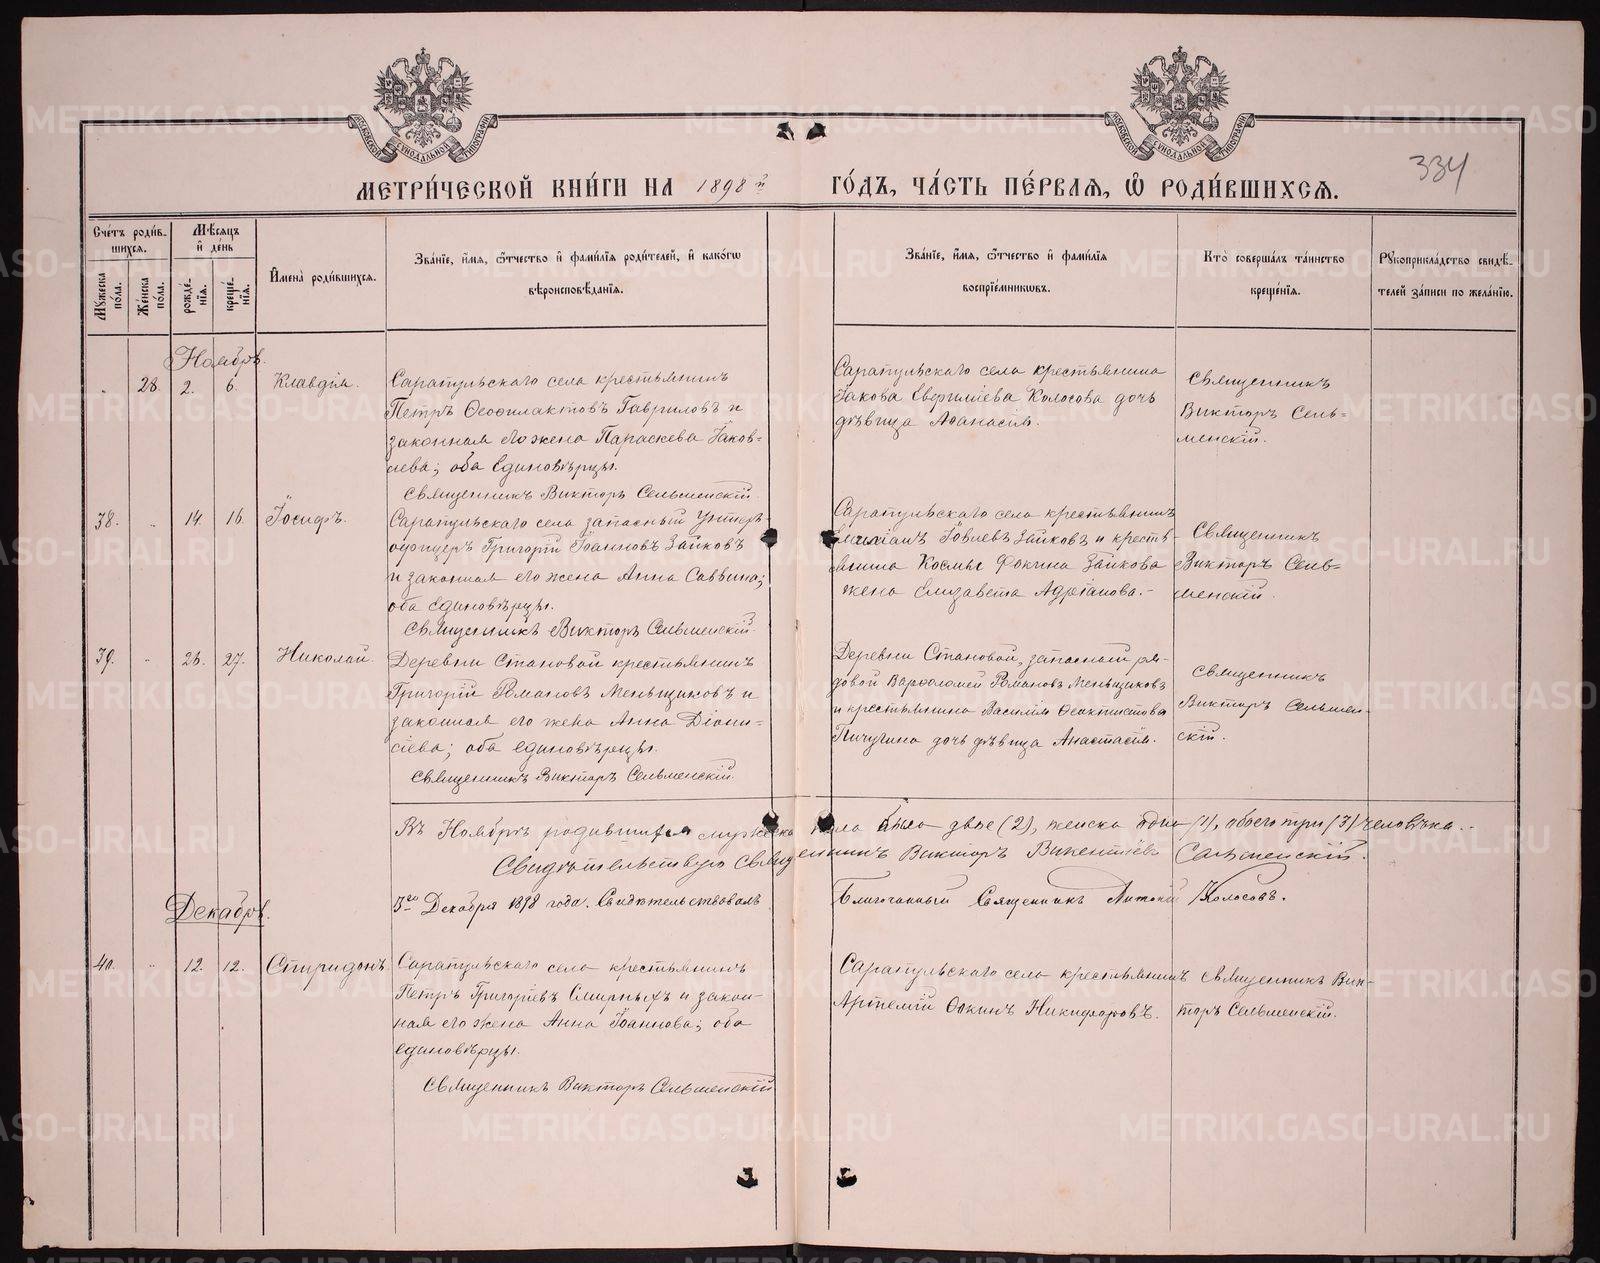 МОСКОВСКОЙ СѴНОДАЛЬНОЙ ТИПОГРАФІИ
МОСКОВСКОЙ СѴНОДАЛЬНОЙ ТИПОГРАФІИ
334
МЕТРИ́ЧЕСКОЙ КНИ́ГИ НА 1898 й ГО́ДЪ, ЧА́СТЬ ПЕ́РВАѦ, Ѽ РОДИ́ВШИХСѦ.
Сче́тъ роди́в-
шихсѧ.
Мѣ́сѧцъ
и҆ де́нь
Мꙋ́жеска по́ла.
Же́нска по́ла.
рожде́-
нїѧ.
креще́-
нїѧ.
И҆мена̀ роди́вшихсѧ.
Зва́нїе, и҆́мѧ, ѻ҆́тчество и҆ фами́лїѧ роди́телей, и҆ како́гѡ
вѣроисповѣ́данїѧ.
Зва́нїе, и҆́мѧ, ѻ҆́тчество и҆ фами́лїѧ
воспрїе́мникѡвъ.
Кто̀ соверша́лъ та́инство
креще́нїѧ.
Рꙋкоприкла́дство свидѣ́-
телей за́писи по жела́нїю.
Ноябрь.
28. 2. 6. Клавдія.
Сарапульскаго села крестьянинъ
Петръ Ѳеофилактовъ Гавриловъ и
законная его жена Параскева Іаков-
лева; оба единовѣрцы.
Священникъ Викторъ Сельменскій
Сарапульскаго села крестьянина
Іакова Колосова дочь
дѣвица Аѳанасія.
Священникъ
Викторъ Сель-
менскій.
38. 14. 16. Іосифъ.
Сарапульскаго села запасный унтеръ-
офицеръ Григорій Іоанновъ Зайковъ
и законная его жена Анна Саввина;
оба единовѣрцы.
Священникъ Викторъ Сельменскій
Сарапульскаго села крестьянинъ
Іовлевъ Зайковъ и кресть-
янина Космы Фокина Зайкова
жена Елизавета Адріанова.-
Священникъ
Викторъ Сель-
менскій.
39. 26. 27. Николай.
Деревни Становой крестьянинъ
Григорій Романовъ Меньщиковъ и
законная его жена Анна Діони-
сіева; оба единовѣрцы.
Священникъ Викторъ Сельменскій.
Деревни Становой, запасный ря-
довой Варѳоломей Романовъ Меньщиковъ
и крестьянина Василія Ѳеоктистова
Пичугина дочь дѣвица Анастасія.
Священникъ
Викторъ Сельмен-
скій.
Въ Ноябрѣ родившихся мужеска пола было двое (2), женска одна (1), обоего три (3) человѣка.
Свидѣтельствую Священникъ Викторъ Викентіевъ Сельменскій.
Декабрь.
3го Декабря 1898 года. Свидѣтельствовалъ Благочинный Священникъ Антоній Колосовъ.
40. 12. 12. Спиридонъ.
Сарапульскаго села крестьянинъ
Петръ Григоріевъ Смирныхъ и закон-
ная его жена Анна Іоаннова; оба
единовѣрцы.
Священникъ Викторъ Сельменскій
Сарапульскаго села крестьянинъ
Артемій Ѳокинъ Никифоровъ.
Священникъ Вик-
торъ Сельменскій.
METRIKI.GASO-URAL.RU